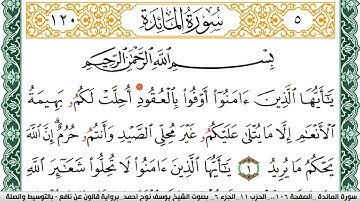 ١٢٠ سُورَةُ المَائِدَةِ ٥
بِسْمِ اللَّهِ الرَّحْمَٰنِ الرَّحِيمِ
يَٰأَيُّهَا الَّذِينَ ءَامَنُوا أَوْفُوا بِالْعُقُودِ أُحِلَّتْ لَكُمُ بَهِيمَةُ
الْأَنْعَٰمِ إِلَّا مَا يُتْلَىٰ عَلَيْكُمُ غَيْرَ مُحِلِّي الصَّيْدِ وَأَنتُمُ حُرُمٌ إِنَّ اللَّهَ
يَحْكُمُ مَا يُرِيدُ ١ يَٰأَيُّهَا الَّذِينَ ءَامَنُوا لَا تُحِلُّوا شَعَٰٓئِرَ اللَّهِ
سورة المائدة _ الصفحة ١٠٦ .. الحزب ١١ .الجزء ٦ . بصوت الشيخ يوسف نوح احمد .برواية قالون عن نافع .. بالتوسيط والصلة